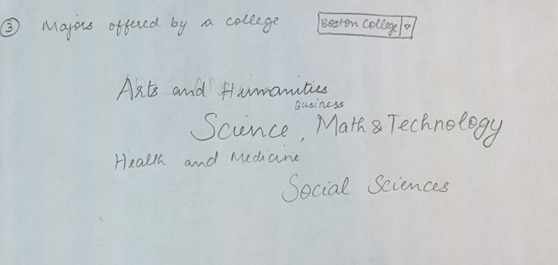 ③ Majors offered by a college Boston College ▽
Arts and Humanities
Business
Science, Math & Technology
Health and Medicine
Social Sciences